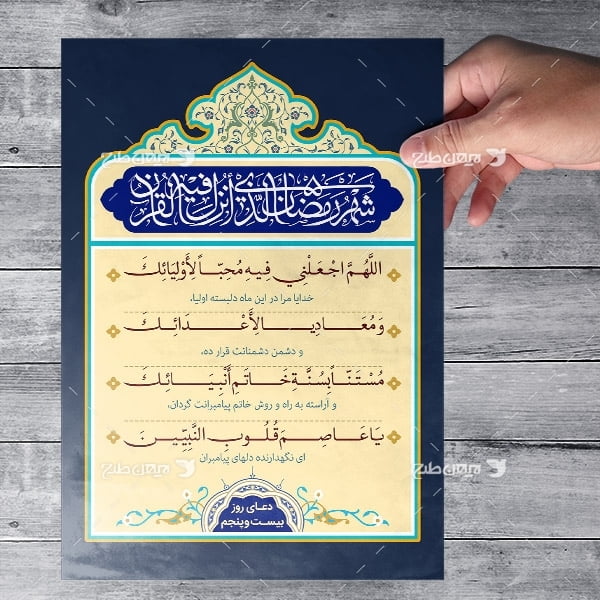 شَهْرُ رَمَضَانَ الَّذِي أُنْزِلَ فِيهِ الْقُرْآنُ
اللَّهُمَّ اجْعَلْنِي فِيهِ مُحِبّاً لِأَوْلِيَائِكَ
خدایا مرا در این ماه دلبسته اولیا،
وَ مُعَادِياً لِأَعْدَائِكَ
و دشمن دشمنانت قرار ده،
مُسْتَنّاً بِسُنَّةِ خَاتَمِ أَنْبِيَائِكَ
و آراسته به راه و روش خاتم پیامبرانت گردان،
يَا عَاصِمَ قُلُوبِ النَّبِيِّينَ
ای نگهدارنده دلهای پیامبران
دعای روز
بیست و پنجم